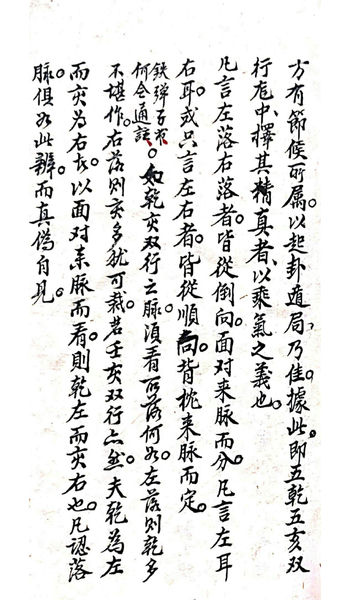 方有節候所屬。以起卦遁局，乃佳。據此。即五乾五亥双
行龙中，擇其精真者，以乘氣之義也。
凡言左落右落者。皆從倒向面对来脉而分。凡言左耳
右耳。或只言左右者。皆從順向背枕来脉而定。
鉄弹子
何令通註。如乾亥双行之脉。須看所落何如。左落则乾多
不堪作。右落则亥多犹可裁。若壬亥双行亦然。夫乾為左
而亥為右。以面对来脉而看。則乾左而亥右也。凡認落
脉。俱如此辨。而真偽自見。